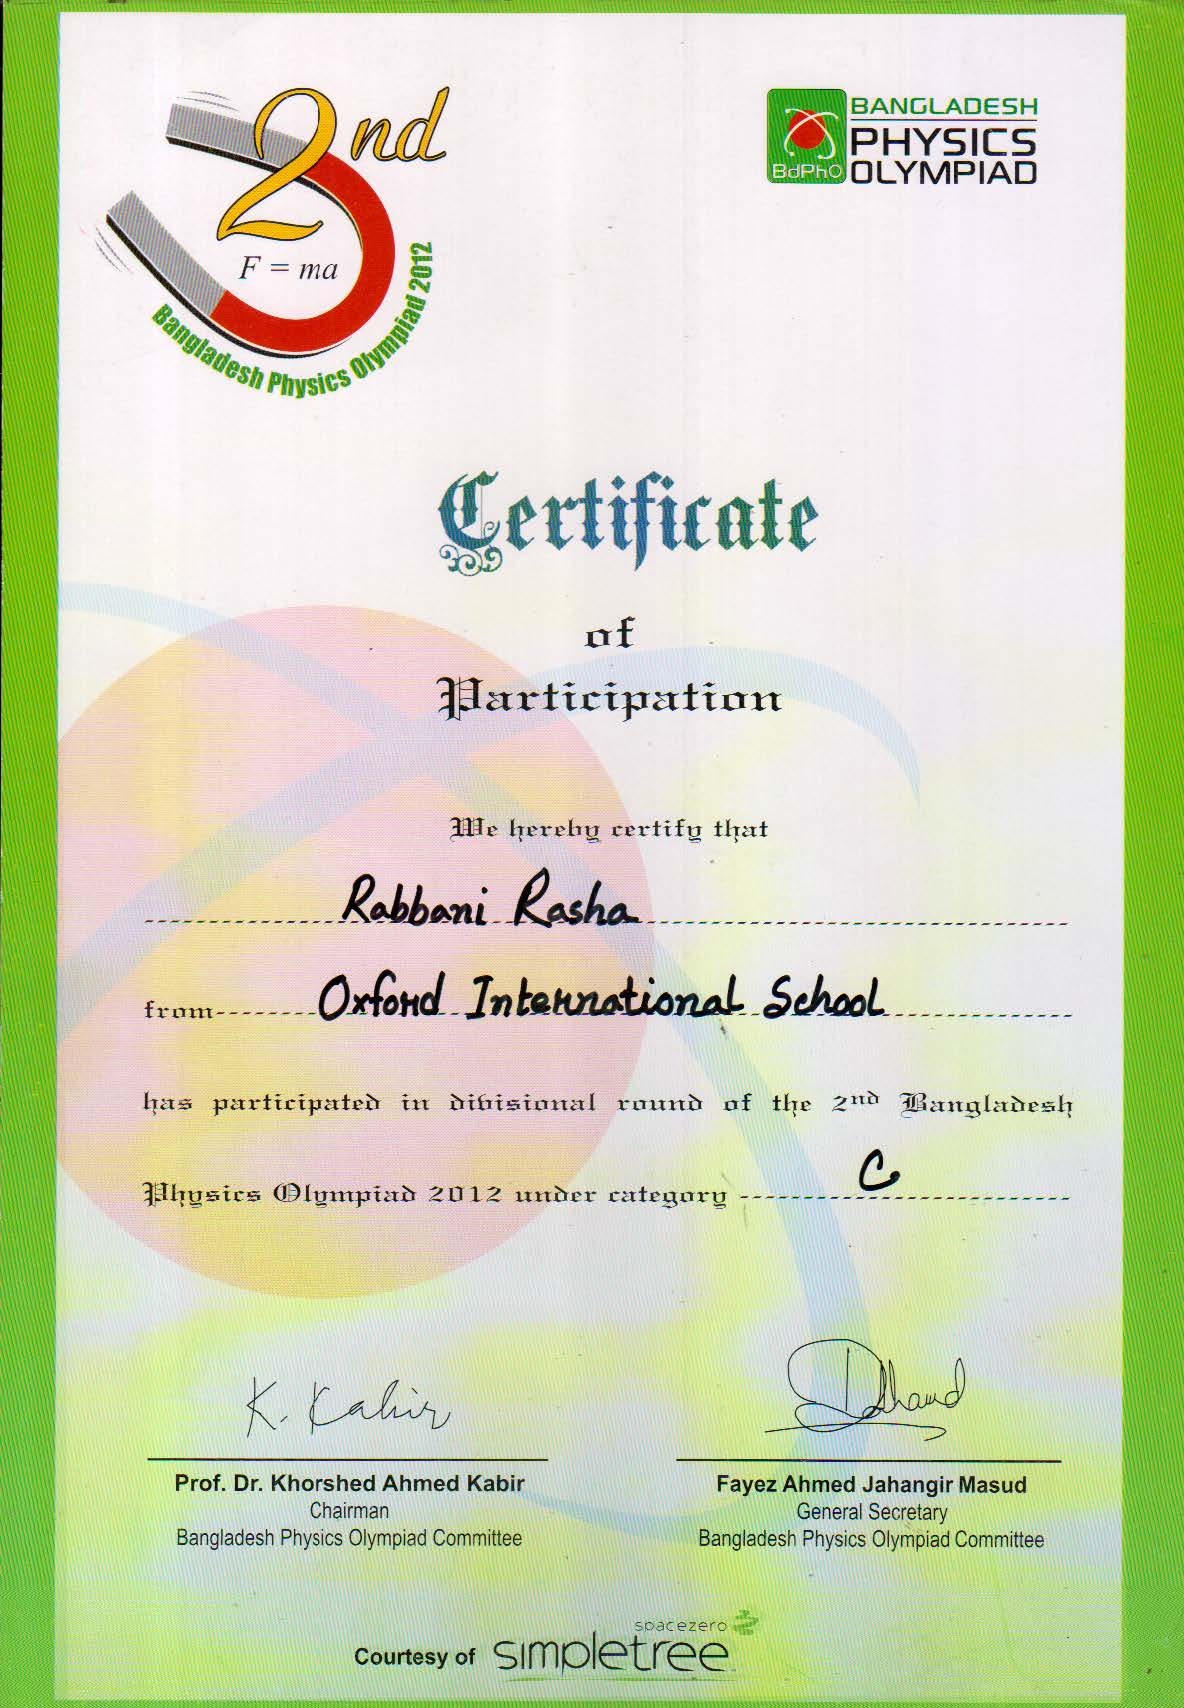 2nd
F = ma
Bangladesh Physics Olympiad 2012
BdPhO
BANGLADESH
PHYSICS
OLYMPIAD
Certificate
of
Participation
We hereby certify that
Rabbani Rasha
from Oxford International School
has participated in divisional round of the 2nd Bangladesh
Physics Olympiad 2012 under category C
K. Kabir
Prof. Dr. Khorshed Ahmed Kabir
Chairman
Bangladesh Physics Olympiad Committee
Fayez Ahmed Jahangir Masud
General Secretary
Bangladesh Physics Olympiad Committee
Courtesy of
spacezero
simpletree